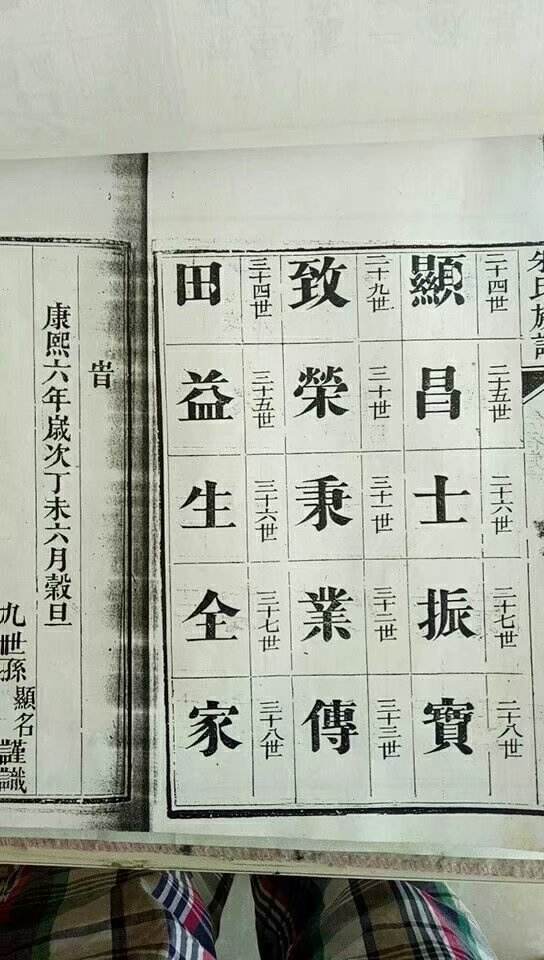 朱氏族譜
二十四世
二十五世
二十六世
二十七世
二十八世
顯昌士振寶
二十九世
三十世
三十一世
三十二世
三十三世
致榮秉業傳
三十四世
三十五世
三十六世
三十七世
三十八世
田益生全家
旹
康熙六年嵗次丁未六月穀旦
九世孫顯名謹識